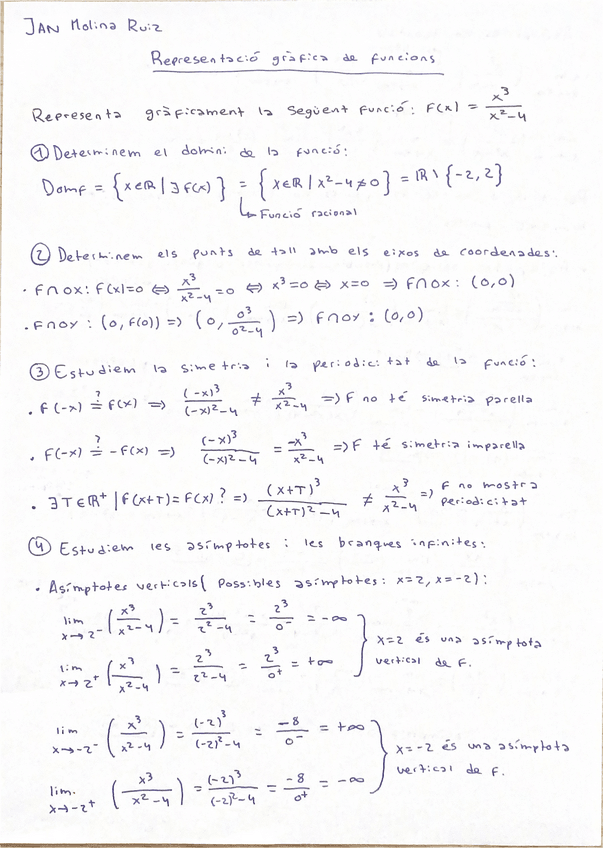 JAN Molina Ruiz
Representació gràfica de funcions
Representa gràficament la següent funció: F(x) = x³/(x²-4)
① Determinem el domini de la funció:
Domf = {x∈ℝ | ∃ f(x)} = {x∈ℝ | x²-4≠0} = ℝ \ {-2, 2}
↳ Funció racional
② Determinem els punts de tall amb els eixos de coordenades:
· F∩OX: F(x)=0 ⇔ x³/(x²-4) = 0 ⇔ x³=0 ⇔ x=0 ⇒ F∩OX: (0,0)
· F∩OY: (0, F(0)) ⇒ (0, 0³/(0²-4)) ⇒ F∩OY: (0,0)
③ Estudiem la simetria i la periodicitat de la funció:
· F(-x) ≟ F(x) ⇒ (-x)³/((-x)²-4) ≠ x³/(x²-4) ⇒ F no té simetria parella
· F(-x) ≟ -F(x) ⇒ (-x)³/((-x)²-4) = -x³/(x²-4) ⇒ F té simetria imparella
· ∃T∈ℝ⁺ | F(x+T)=F(x)? ⇒ (x+T)³/((x+T)²-4) ≠ x³/(x²-4) ⇒ F no mostra periodicitat
④ Estudiem les asímptotes i les branques infinites:
· Asímptotes verticals (Possibles asímptotes: x=2, x=-2):
lim x→2⁻ (x³/(x²-4)) = 2³/(2²-4) = 2³/0⁻ = -∞
lim x→2⁺ (x³/(x²-4)) = 2³/(2²-4) = 2³/0⁺ = +∞
x=2 és una asímptota
vertical de F.
lim x→-2⁻ (x³/(x²-4)) = (-2)³/((-2)²-4) = -8/0⁻ = +∞
lim. x→-2⁺ (x³/(x²-4)) = (-2)³/((-2)²-4) = -8/0⁺ = -∞
x=-2 és una asímptota
vertical de F.